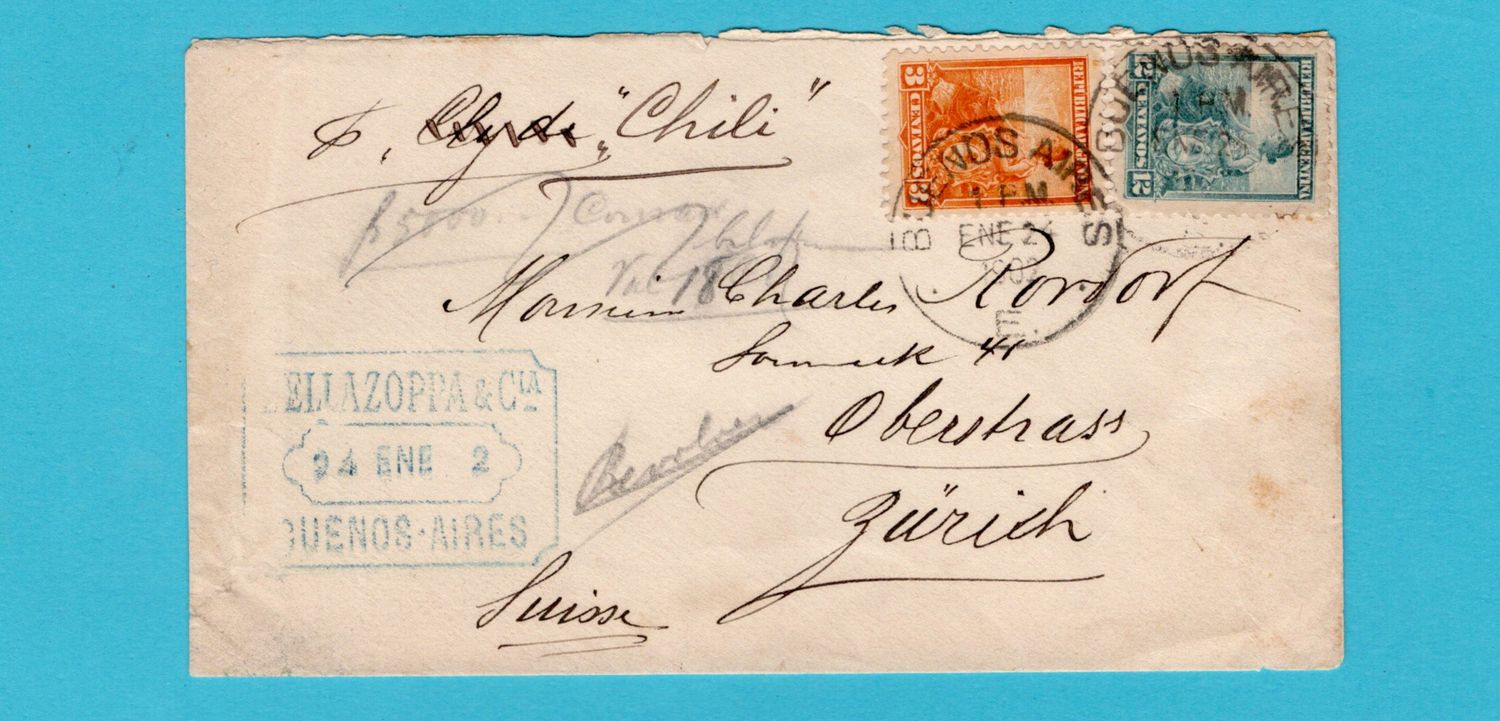 p. "Clyde" "Chili"
3 CENTAVOS 3
REPUBLICA ARGENTINA
12 CENTAVOS 12
REPUBLICA ARGENTINA
BUENOS AIRES
1 P.M.
ENE 24
1902
E.
BUENOS AIRES
1 P.M.
ENE 24
$5000
Val 18
Charles Rordorf
41
Oberstrass
Zürich
Suisse
ELLAZOPPA & CIA
24 ENE 2
BUENOS-AIRES